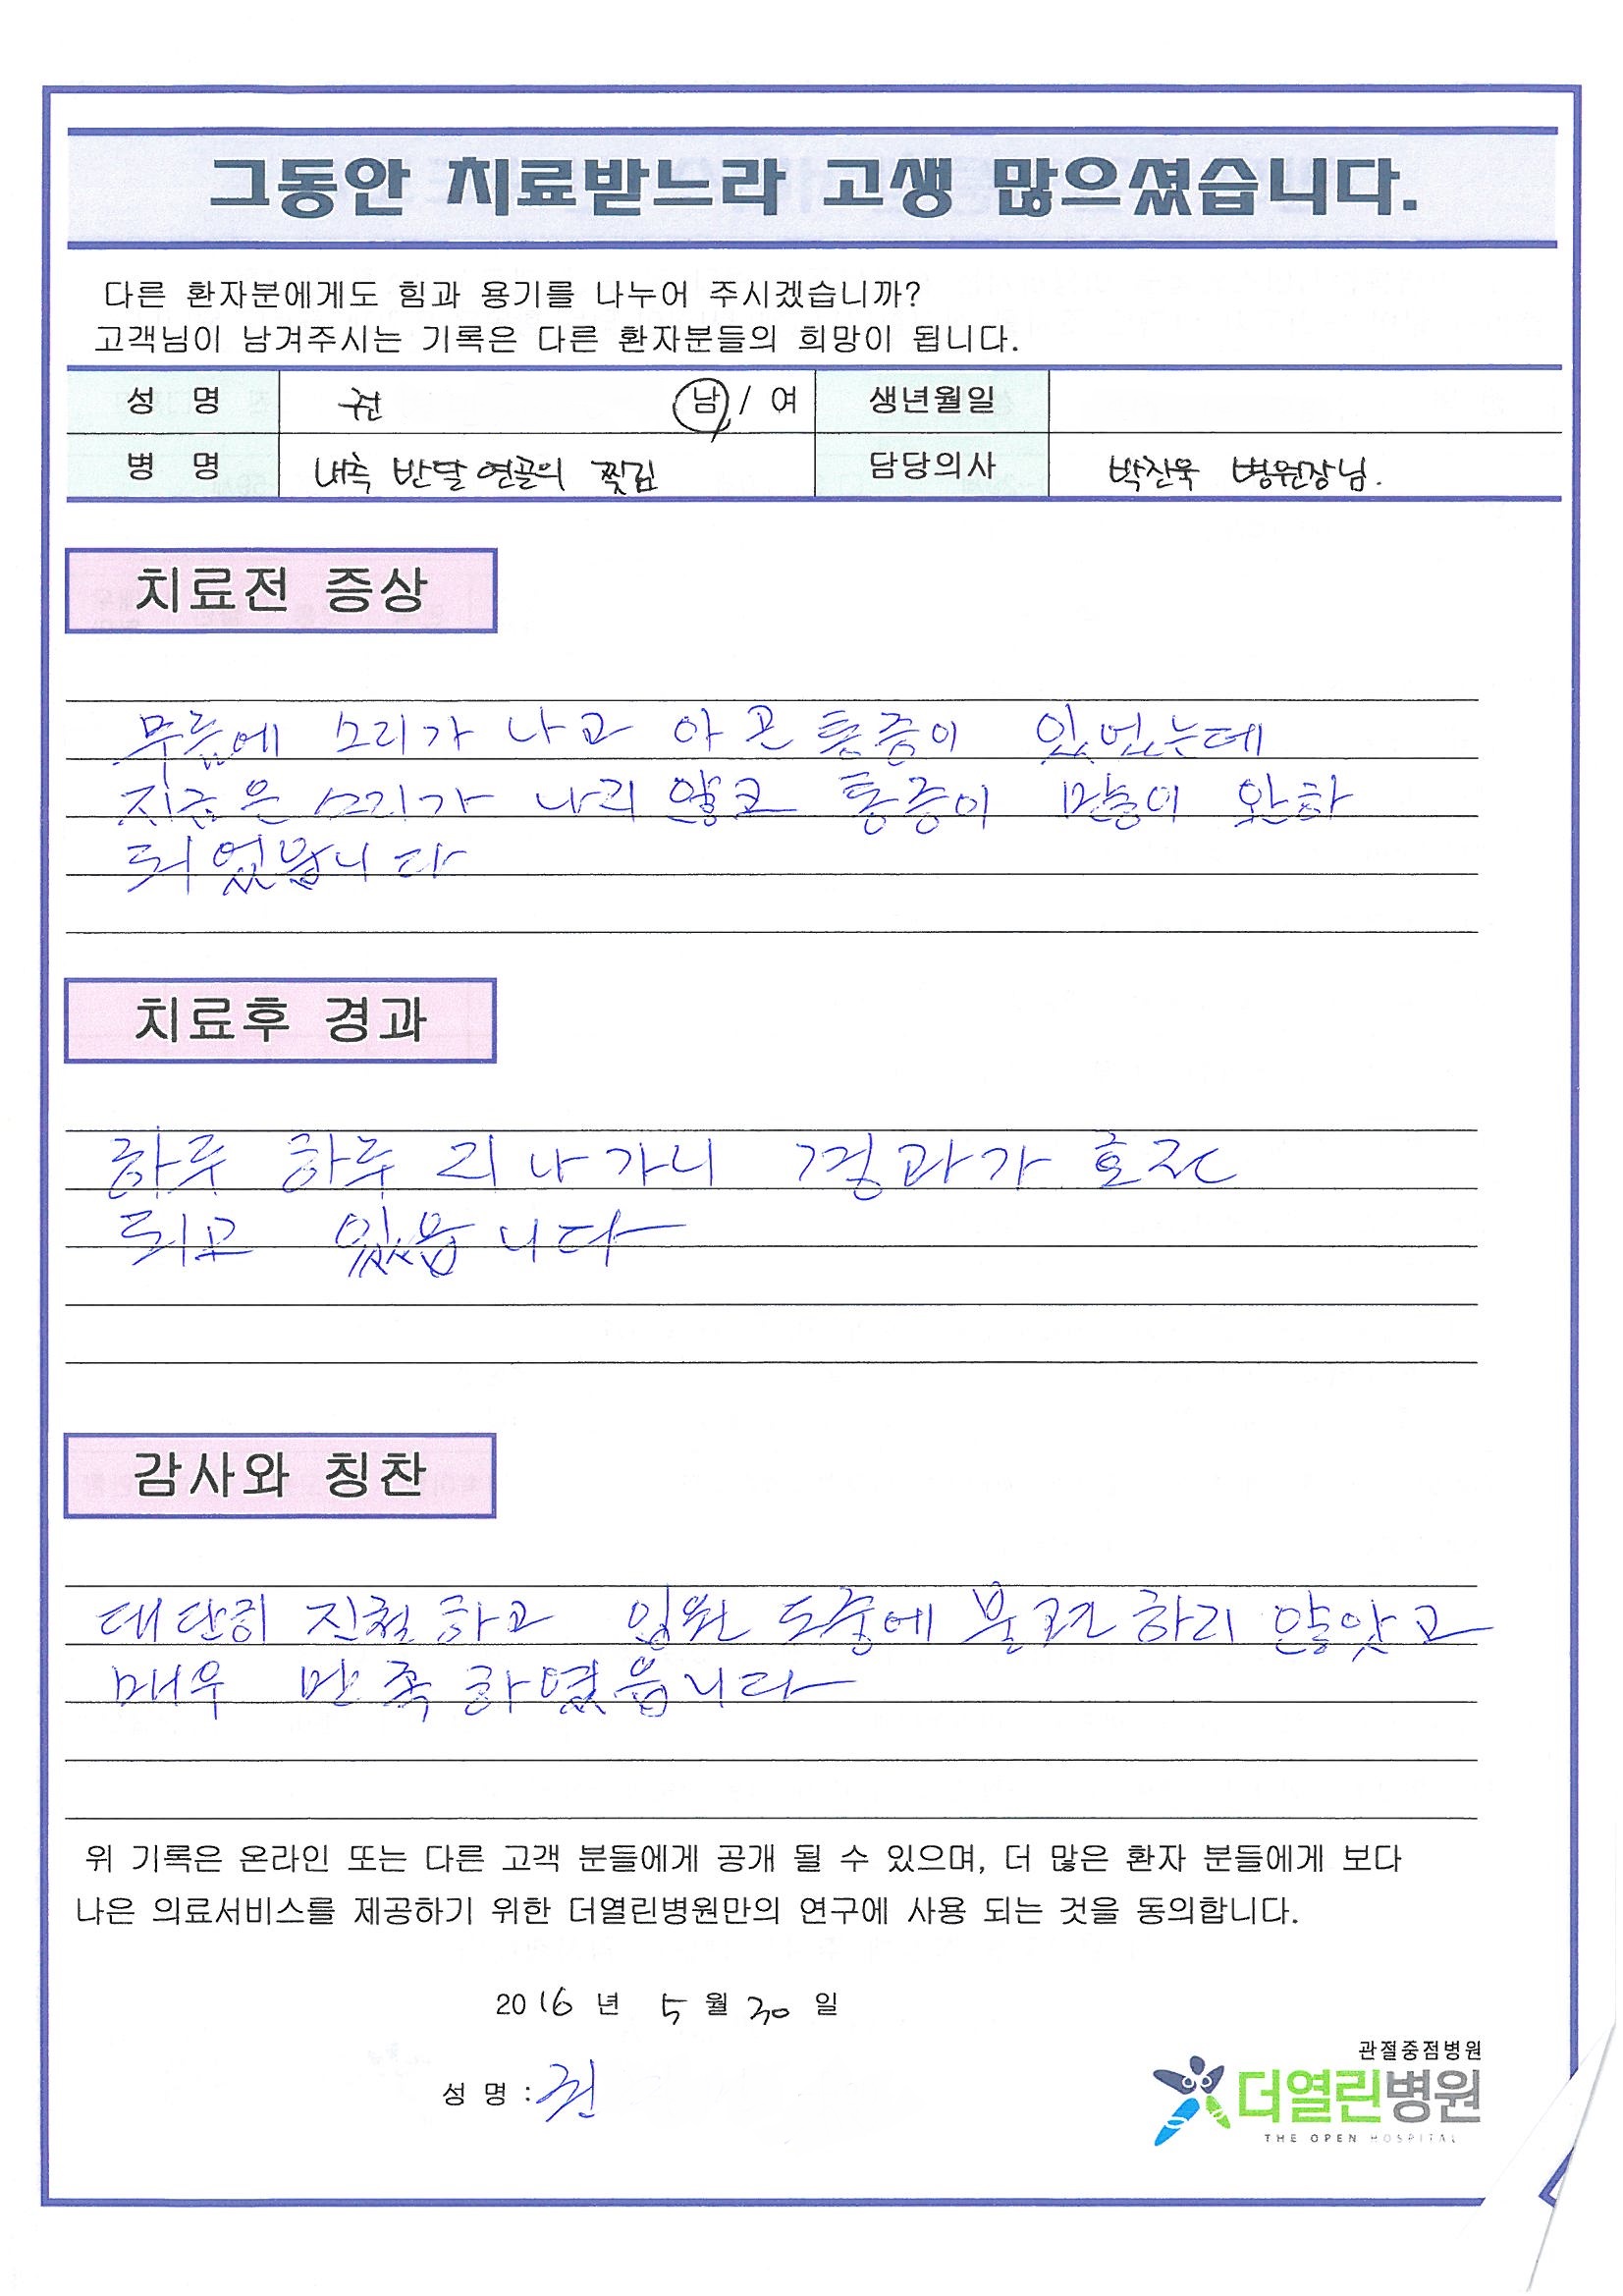 그동안 치료받느라 고생 많으셨습니다.
다른 환자분에게도 힘과 용기를 나누어 주시겠습니까?
고객님이 남겨주시는 기록은 다른 환자분들의 희망이 됩니다.
성 명 권 남 / 여 생년월일
병 명 내측 반달연골의 찢김 담당의사 박찬욱 병원장님.
치료전 증상
무릎에 소리가 나고 아픈 통증이 있었는데
지금은 소리가 나지 않고 통증이 많이 완화
되었읍니다
치료후 경과
하루 하루 지나가니 경과가 호전
되고 있읍니다
감사와 칭찬
대단히 친절하고 입원 도중에 불편하지 않았고
매우 만족하였읍니다
위 기록은 온라인 또는 다른 고객 분들에게 공개 될 수 있으며, 더 많은 환자 분들에게 보다
나은 의료서비스를 제공하기 위한 더열린병원만의 연구에 사용 되는 것을 동의합니다.
2016 년 5 월 30 일
성 명 : 권
관절중점병원
더열린병원
THE OPEN HOSPITAL